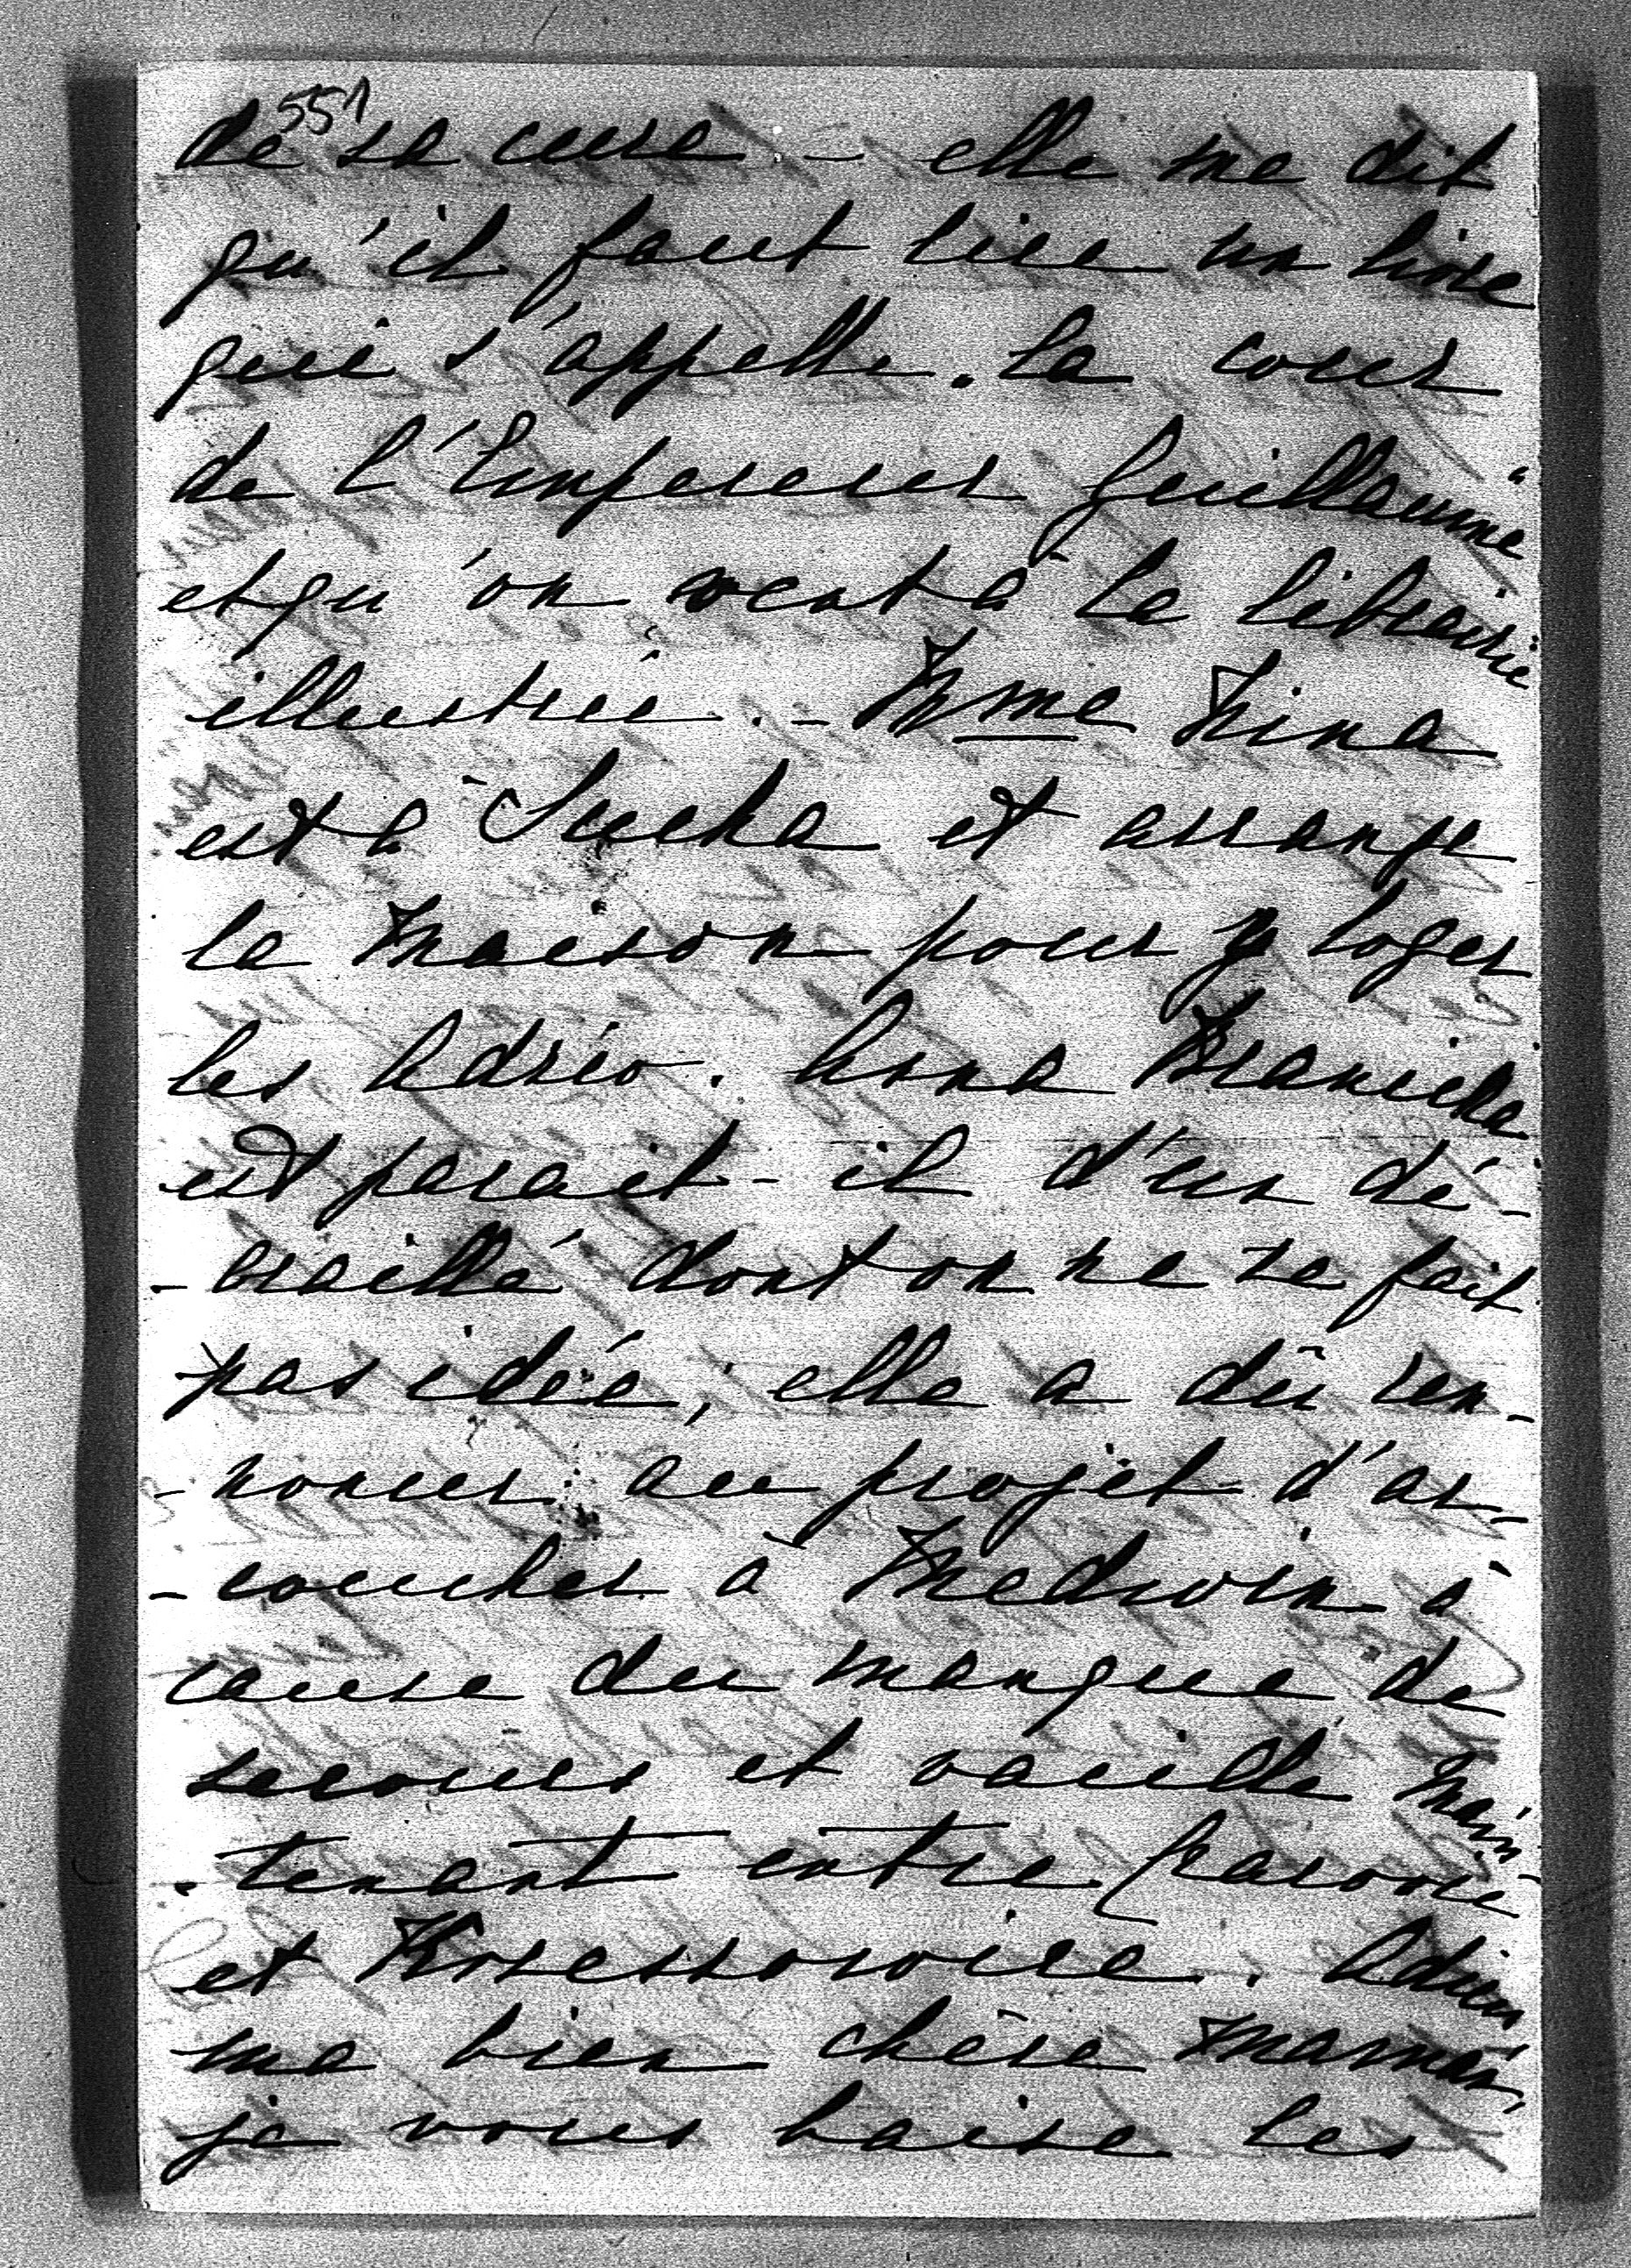 551
de sa cure. – elle me dit
qu'il faut lire un livre
qui s'appelle. La cour
de l'Empereur Guillaume"
et qu'on vent à la librairie
illustrée. – Mme Nina
est à Sucha et arrange
la Maison pour y loger
les Adzio. Anna Branicka
est parait-il d'un dé-
-braillé dont on ne se fait
pas idée, elle a dû ren-
-noncer au projet d'ac-
-coucher à Medwin à
cause du manque de
secours et vacille main-
-tenant entre Varsovie
et . Adieu
ma bien chère Maman,
je vous baise les